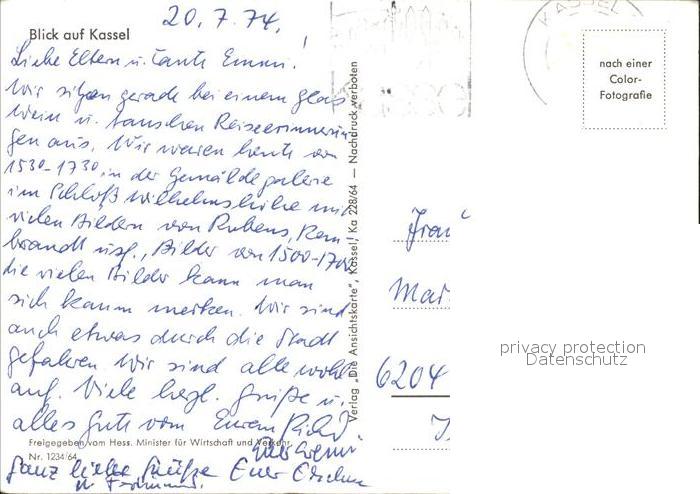 20.7.74.
Blick auf Kassel
Liebe Eltern u. Tante Emmi!
Wir sitzen gerade bei einem Glas
Wein u. tauschen Reiseerinnerun-
gen aus. Wir waren heute von
1530-1730 in der Gemäldegalerie
im Schloß Wilhelmshöhe mit
vielen Bildern von Rubens, Rem-
brandt usf., Bilder von 1500-1700
die vielen Bilder kann man
sich kaum merken. Wir sind
auch etwas durch die Stadt
gefahren. Wir sind alle wohl
auf. Viele herzl. Grüße u.
alles Gute vom Eurem
Freigegeben vom Hess. Minister für Wirtschaft und Verkehr,
Nr. 1234/64
Ganz liebe Grüße Euer
Verlag „Die Ansichtskarte", Kassel, Ka 228/64 — Nachdruck verboten
KASSEL
nach einer
Color-
Fotografie
Frau
Mar
6204
privacy protection
Datenschutz